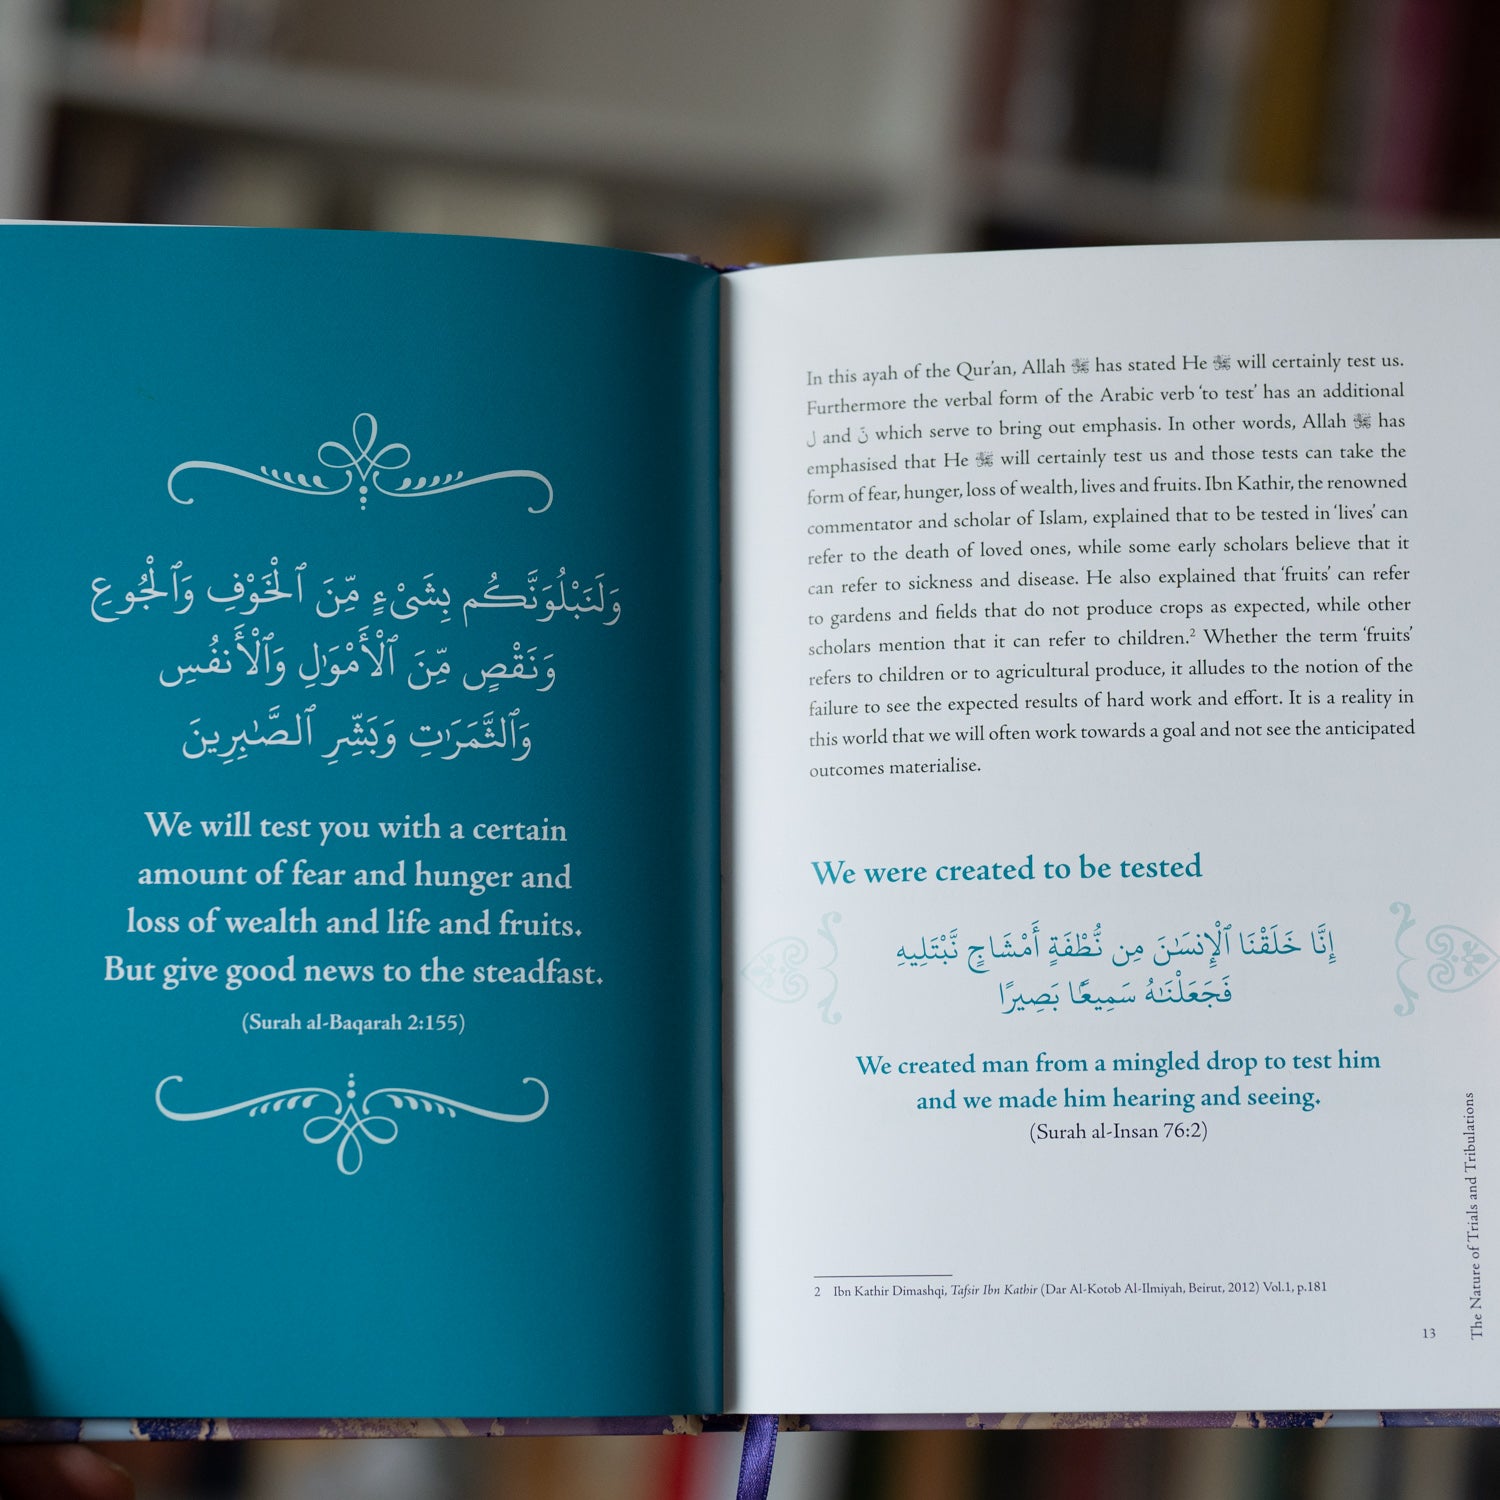 وَلَنَبْلُوَنَّكُم بِشَىْءٍ مِّنَ ٱلْخَوْفِ وَٱلْجُوعِ
وَنَقْصٍ مِّنَ ٱلْأَمْوَٰلِ وَٱلْأَنفُسِ
وَٱلثَّمَرَٰتِ وَبَشِّرِ ٱلصَّـٰبِرِينَ
We will test you with a certain
amount of fear and hunger and
loss of wealth and life and fruits.
But give good news to the steadfast.
(Surah al-Baqarah 2:155)
In this ayah of the Qur'an, Allah ﷻ has stated He ﷻ will certainly test us.
Furthermore the verbal form of the Arabic verb 'to test' has an additional
ل and نّ which serve to bring out emphasis. In other words, Allah ﷻ has
emphasised that He ﷻ will certainly test us and those tests can take the
form of fear, hunger, loss of wealth, lives and fruits. Ibn Kathir, the renowned
commentator and scholar of Islam, explained that to be tested in 'lives' can
refer to the death of loved ones, while some early scholars believe that it
can refer to sickness and disease. He also explained that 'fruits' can refer
to gardens and fields that do not produce crops as expected, while other
scholars mention that it can refer to children.² Whether the term 'fruits'
refers to children or to agricultural produce, it alludes to the notion of the
failure to see the expected results of hard work and effort. It is a reality in
this world that we will often work towards a goal and not see the anticipated
outcomes materialise.
We were created to be tested
إِنَّا خَلَقْنَا ٱلْإِنسَـٰنَ مِن نُّطْفَةٍ أَمْشَاجٍ نَّبْتَلِيهِ
فَجَعَلْنَـٰهُ سَمِيعًۢا بَصِيرًا
We created man from a mingled drop to test him
and we made him hearing and seeing.
(Surah al-Insan 76:2)
2 Ibn Kathir Dimashqi, Tafsir Ibn Kathir (Dar Al-Kotob Al-Ilmiyah, Beirut, 2012) Vol.1, p.181
13
The Nature of Trials and Tribulations